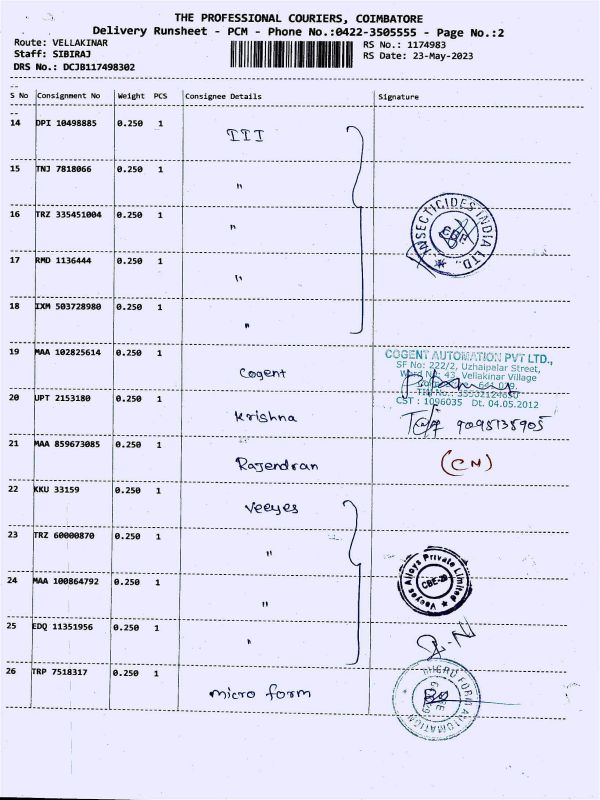 THE PROFESSIONAL COURIERS, COIMBATORE
Delivery Runsheet - PCM - Phone No.:0422-3505555 - Page No.:2
Route: VELLAKINAR
Staff: SIBIRAJ
DRS No.: DCJB117498302
RS No.: 1174983
RS Date: 23-May-2023
S No Consignment No Weight PCS Consignee Details Signature
14 DPI 10498885 0.250 1 III
15 TNJ 7818066 0.250 1 "
16 TRZ 335451004 0.250 1 "
INSECTICIDES INDIA LTD.,
17 RMD 1136444 0.250 1 "
18 IXM 503728980 0.250 1 "
19 MAA 102825614 0.250 1 Cogent
COGENT AUTOMATION PVT LTD.,
SF No: 222/2, Uzhaipalar Street,
Ward No: 43, Vellakinar Village
CST : 1096035 Dt. 04.05.2012
20 UPT 2153180 0.250 1 Krishna
21 MAA 859673085 0.250 1 Rajendran (CN)
22 KKU 33159 0.250 1 Veeyes
23 TRZ 60000870 0.250 1 "
24 MAA 100864792 0.250 1 "
Veeyes Alloys Private Limited
CBE-29
25 EDQ 11351956 0.250 1 "
26 TRP 7518317 0.250 1 micro form
MICRO FORM AUTOMATION